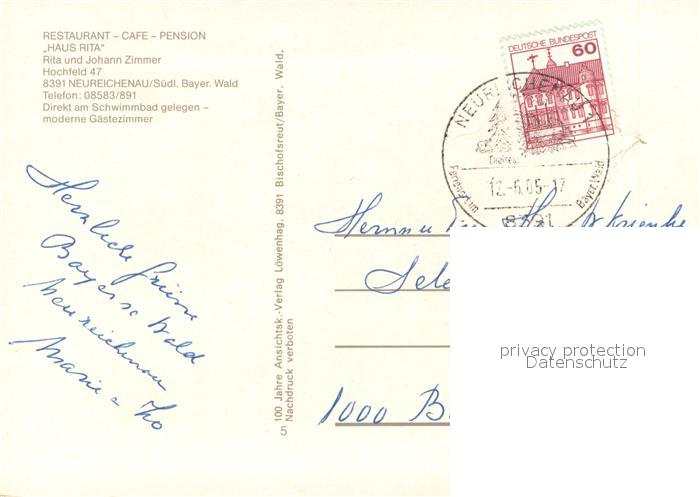 RESTAURANT – CAFE – PENSION
„HAUS RITA"
Rita und Johann Zimmer
Hochfeld 47
8391 NEUREICHENAU/Südl. Bayer. Wald
Telefon: 08583/891
Direkt am Schwimmbad gelegen –
moderne Gästezimmer
Herzliche Grüsse
Bayer. Wald
Neureichenau
Marie
100 Jahre Ansichtsk.-Verlag Löwenhag. 8391 Bischofsreut/Bayer. Wald.
Nachdruck verboten
5
DEUTSCHE BUNDESPOST
60
NEUREICHENAU
Ferienort im Bayer. Wald
12.-6.85-17
8391
Herrn u
1000 B
privacy protection
Datenschutz